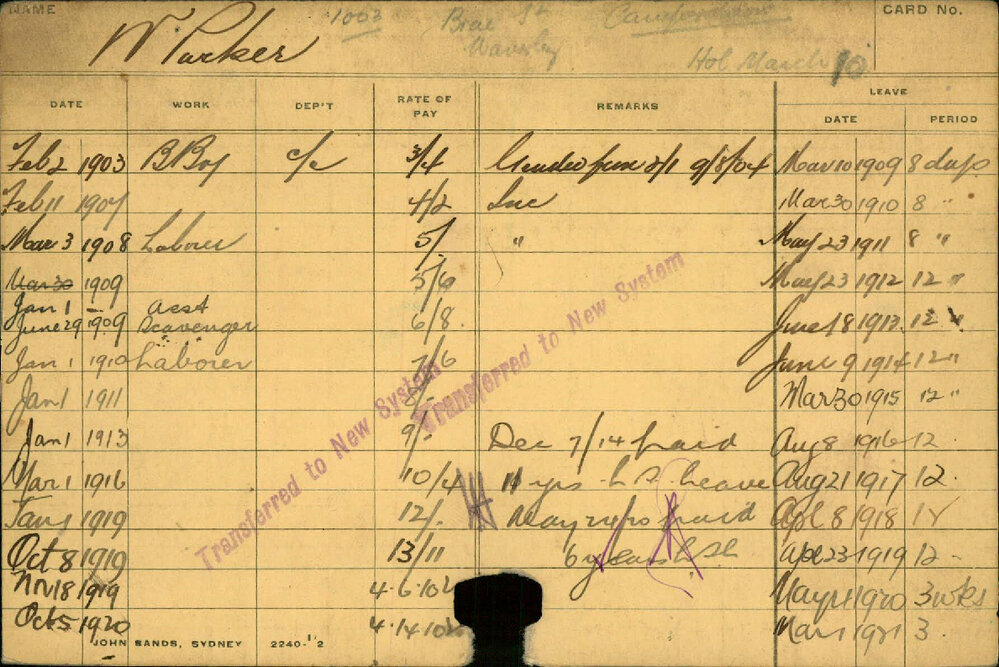 NAME
W Parker
1003
Brae St
Waverley
Hol March 10
CARD No.
DATE WORK DEP'T RATE OF PAY REMARKS LEAVE
DATE PERIOD
Feb 2 1903 B Boy c/c 3/4 9/8/04 Mar 10 1909 8 days
Feb 11 1907 4/2 Inc Mar 30 1910 8 "
Mar 3 1908 Laborer 5/ " May 23 1911 8 "
Mar 30 1909 5/6 May 23 1912 12 "
Jan 1 — Asst
June 29 1909 Scavenger 6/8 June 18 1913 12 "
Jan 1 1910 Laborer 7/6 June 9 1914 12 "
Jan 1 1911 8/- Mar 30 1915 12 "
Jan 1 1913 9/- Dec 7/14 paid Aug 8 1916 12
Mar 1 1916 10/4 11 yrs L S Leave Aug 21 1917 12
Jan 1 1919 12/- paid Apl 8 1918 12
Oct 8 1919 13/11 6 years LSL Apl 23 1919 12
Nov 18 1919 4.6.10 May 1920 3 wks
Oct 5 1920 4.14.10 Mar 1 1921 3
Transferred to New System
Transferred to New System
JOHN SANDS, SYDNEY 2240-12